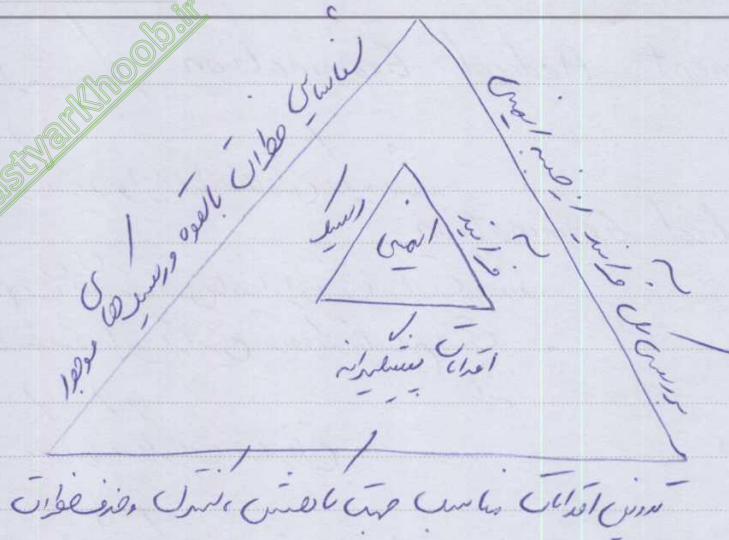 شناسایی خطرات بالقوه و ریسک های موجود
بررسی کل فرآیند از جنبه ایمنی
ریسک
ایمنی
فرآیند
اقدامات پیشگیرانه
تدوین اقدامات مناسب جهت کاهش، کنترل و حذف خطرات